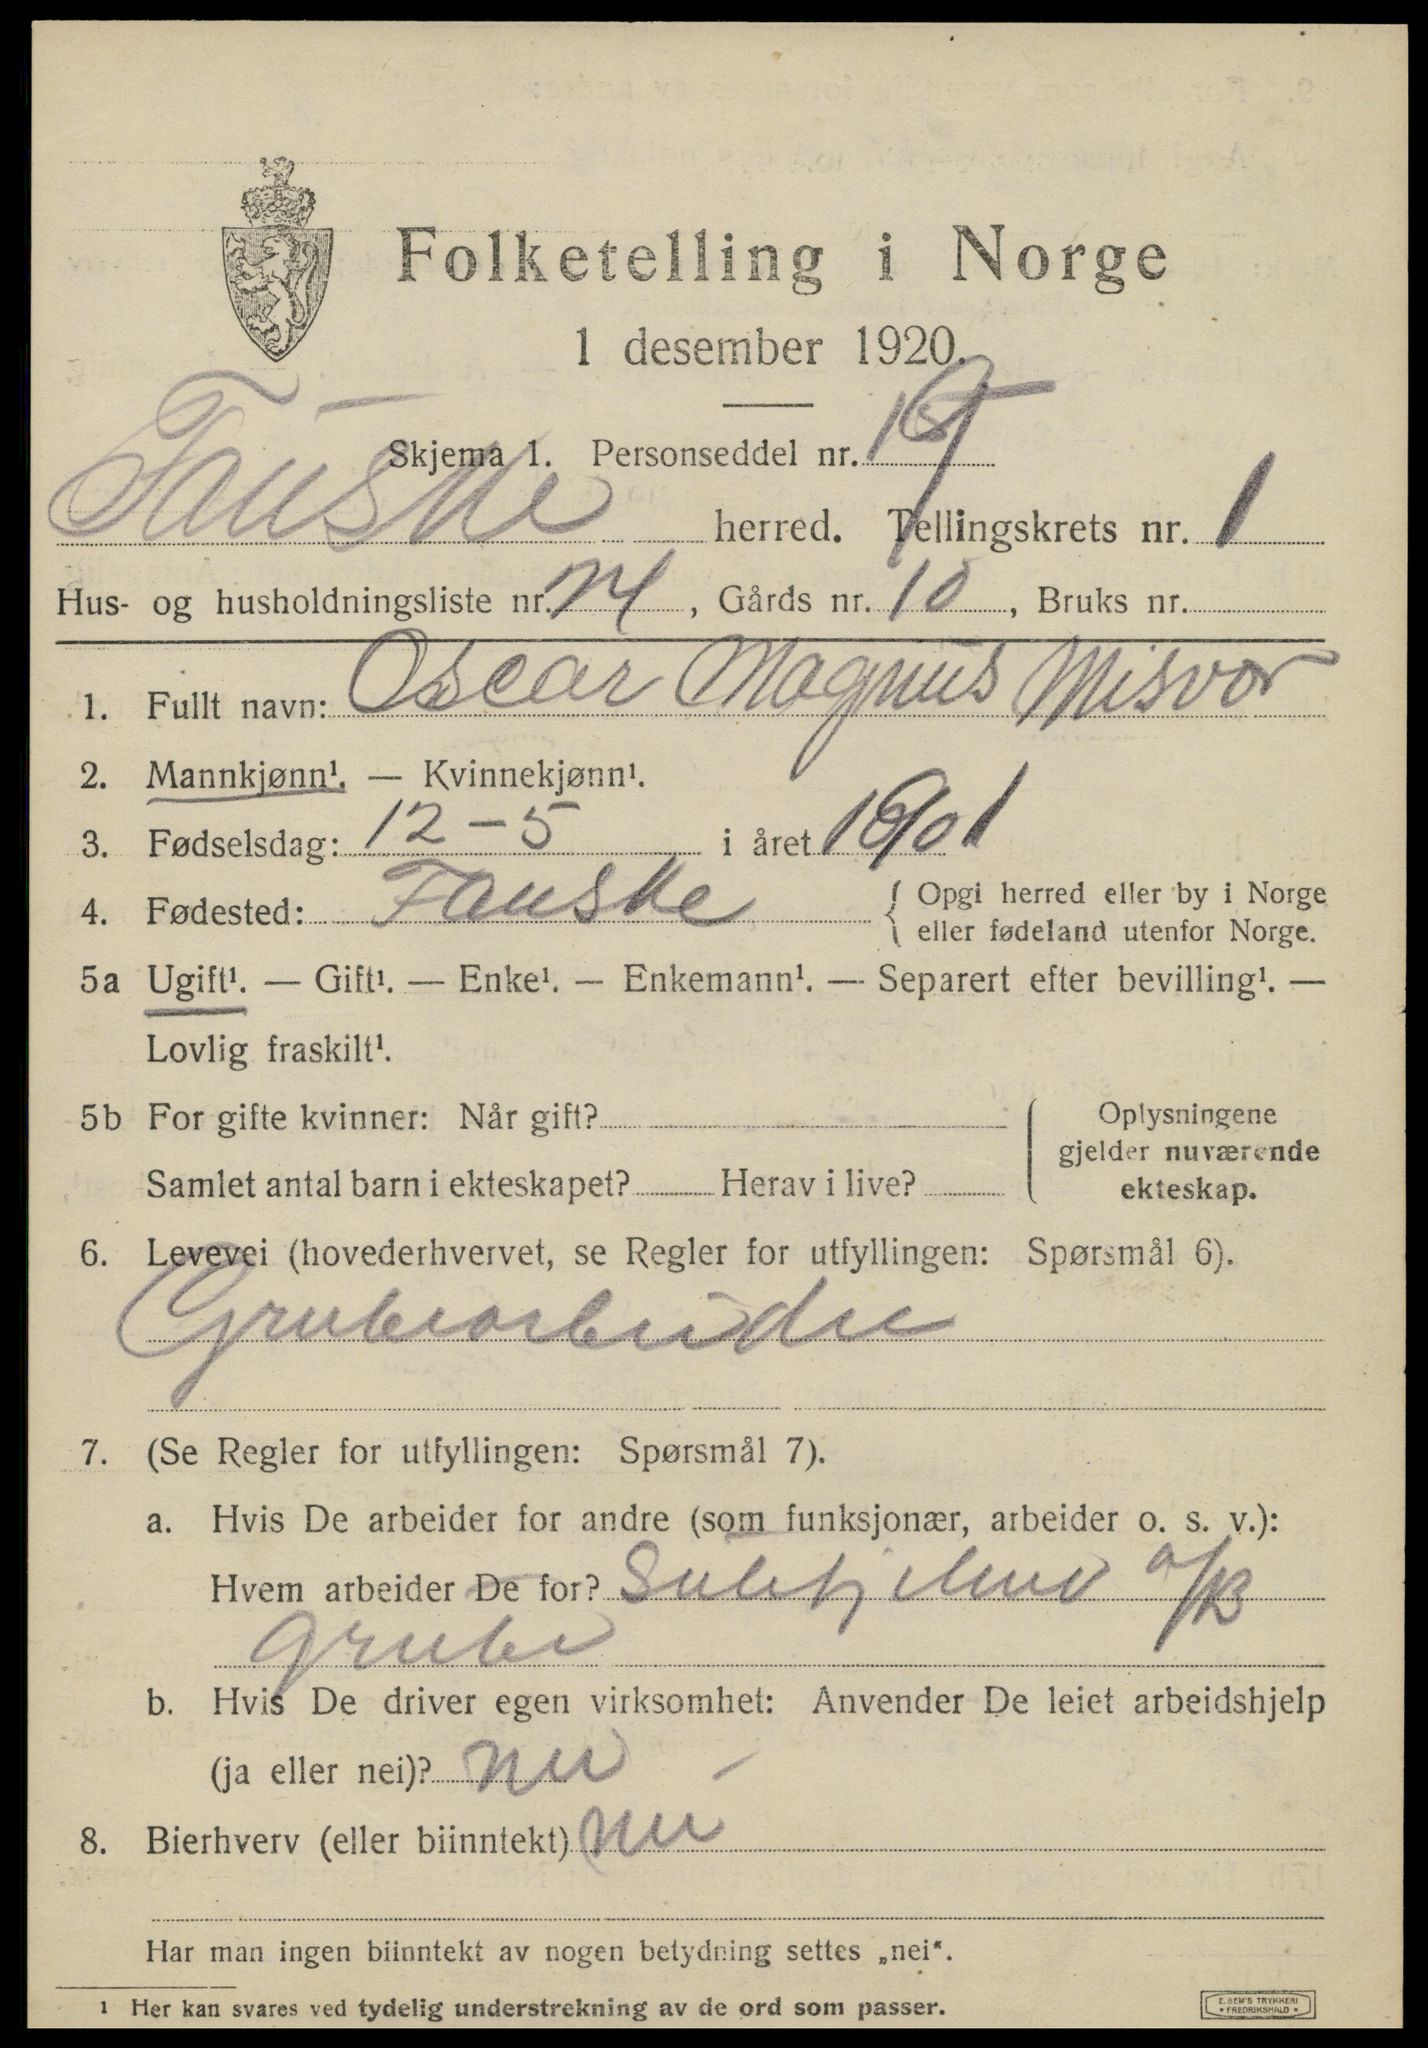 Folketelling i Norge
1 desember 1920.
Skjema 1. Personseddel nr.
Fauske herred. Tellingskrets nr. 1
Hus- og husholdningsliste nr. 14, Gårds nr. 10, Bruks nr.
1. Fullt navn: Oscar Magnus Misvær
2. Mannkjønn¹. — Kvinnekjønn¹.
3. Fødselsdag: 12-5 i året 1901
4. Fødested: Fauske { Opgi herred eller by i Norge
eller fødeland utenfor Norge.
5a Ugift¹. — Gift¹. — Enke¹. — Enkemann¹. — Separert efter bevilling¹. —
Lovlig fraskilt¹.
5b For gifte kvinner: Når gift? { Oplysningene
gjelder nuværende
Samlet antal barn i ekteskapet? Herav i live? ekteskap.
6. Levevei (hovederhvervet, se Regler for utfyllingen: Spørsmål 6).
Grubearbeider
7. (Se Regler for utfyllingen: Spørsmål 7).
a. Hvis De arbeider for andre (som funksjonær, arbeider o. s. v.):
Hvem arbeider De for? Sulitjelma A/B
Grube
b. Hvis De driver egen virksomhet: Anvender De leiet arbeidshjelp
(ja eller nei)? nei —
8. Bierhverv (eller biinntekt) nei
Har man ingen biinntekt av nogen betydning settes „nei“.
1 Her kan svares ved tydelig understrekning av de ord som passer.
E. SEM'S TRYKKERI
• FREDRIKSHALD •